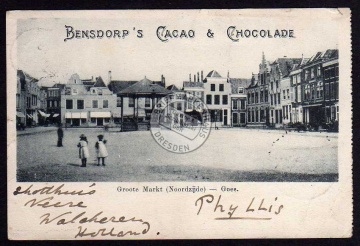 BENSDORP'S CACAO & CHOCOLADE
DRESDEN
Groote Markt (Noordzijde) — Goes.
Schotthuis
Veere
Walcheren
Holland.
Phyllis